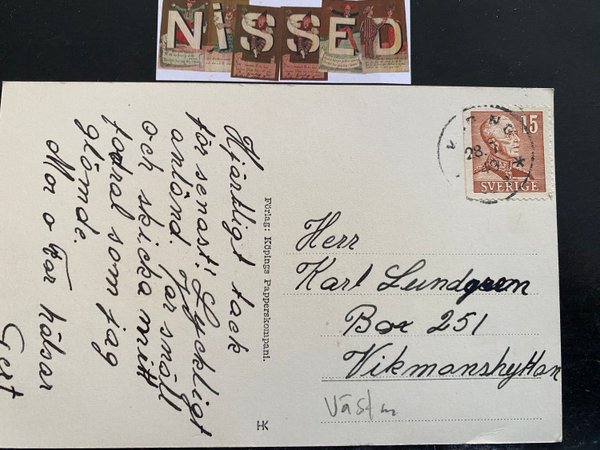 NiSSED
Hjärtligt tack
för senast! Lyckligt
anländ. Var snäll
och skicka mitt
fodral som jag
glömde.
Mor o Far hälsar
Gert
Förlag: Köpings Papperskompani.
HK
15
SVERIGE
KÖPING
28. 5
Herr
Karl Lundgren
Box 251
Vikmanshyttan
Västm